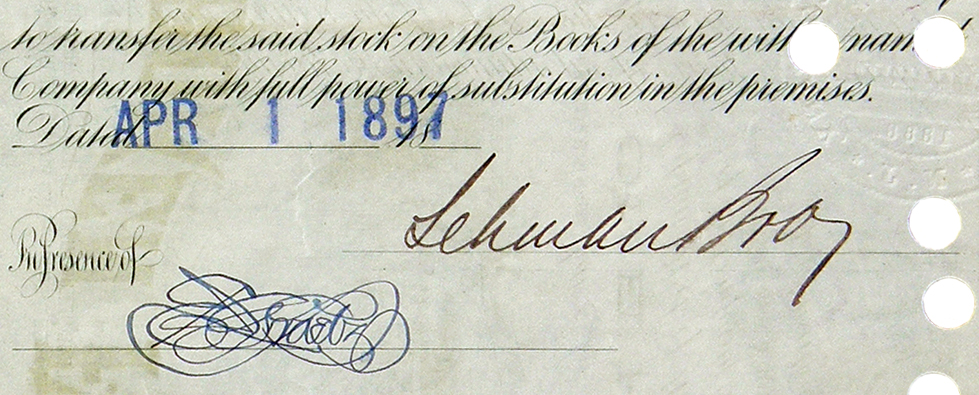 to transfer the said stock on the Books of the with nam
Company with full power of substitution in the premises.
Dated APR 1 1897 18
Lehman Bros
In Presence of
1886